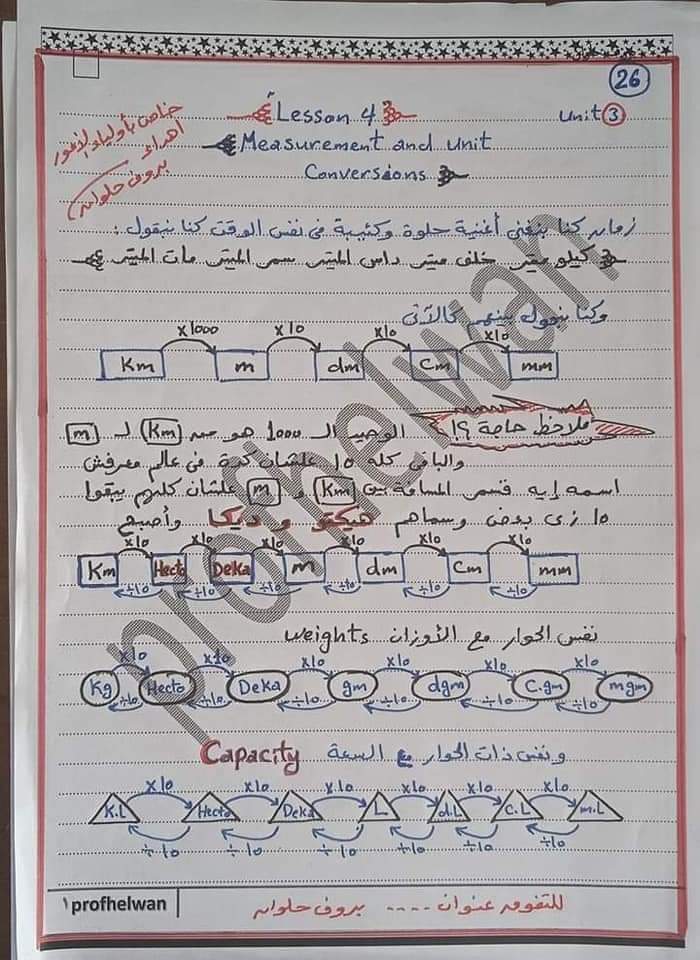 26
Lesson 4
Unit 3
Measurement and unit
Conversions
خاص بأولياء الأمور
اهداء
بروف حلوان
زمان كنا بنغنى أغنية حلوة وكئيبة فى نفس الوقت كنا بنقول :
كيلو متر خلف متر داس المتر سم المتر مات المتر
وكنا بنحول بينهم كالآتى
x1000 x10 x10 x10
Km m dm Cm mm
ملاحظ حاجة ؟!
الوحيد الـ 1000 هو من Km لـ m
والباقى كله 10 علشان كدة فى عالم معرفش
اسمه إيه قسم المسافة بين Km و m علشان كلهم يبقوا
10 زى بعض وسماهم هيكتو و ديكا وأصبح
x10 x10 x10 x10 x10 x10
Km Hecto Deka m dm Cm mm
÷10 ÷10 ÷10 ÷10 ÷10 ÷10
نفس الحوار مع الأوزان weights
x10 x10 x10 x10 x10 x10
Kg Hecto Deka gm dgm C.gm mgm
÷10 ÷10 ÷10 ÷10 ÷10 ÷10
ونفس ذات الحوار مع السعة Capacity
x10 x10 x10 x10 x10 x10
K.L Hecto Deka L d.L C.L m.L
÷10 ÷10 ÷10 ÷10 ÷10 ÷10
profhelwan
للتفوق عنوان ---- بروف حلوان
profhelwan